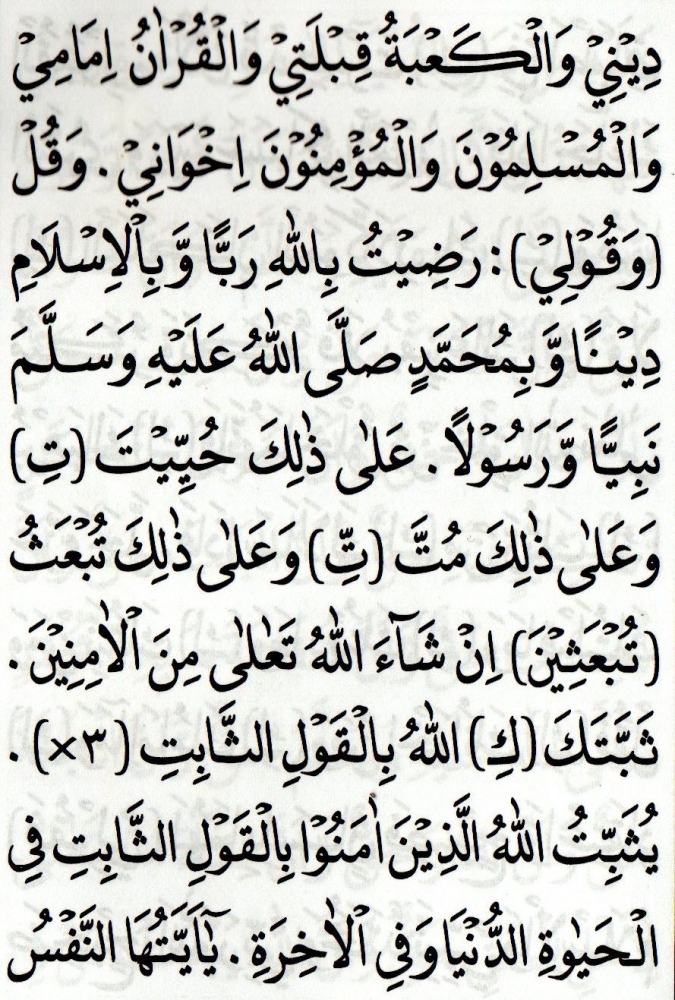 دِيْنِيْ وَالْكَعْبَةُ قِبْلَتِيْ وَالْقُرْاٰنُ اِمَامِيْ
وَالْمُسْلِمُوْنَ وَالْمُؤْمِنُوْنَ اِخْوَانِيْ . وَقُلْ
(وَقُوْلِيْ) : رَضِيْتُ بِاللهِ رَبًّا وَّ بِالْاِسْلَامِ
دِيْنًا وَّ بِمُحَمَّدٍ صَلَّى اللهُ عَلَيْهِ وَسَلَّمَ
نَبِيًّا وَّرَسُوْلًا . عَلٰى ذٰلِكَ حُيِّيْتَ (تِ)
وَعَلٰى ذٰلِكَ مُتَّ (تِّ) وَعَلٰى ذٰلِكَ تُبْعَثُ
(تُبْعَثِيْنَ) اِنْ شَآءَ اللهُ تَعَالٰى مِنَ الْاٰمِنِيْنَ .
ثَبَّتَكَ (كِ) اللهُ بِالْقَوْلِ الثَّابِتِ (٣×) .
يُثَبِّتُ اللهُ الَّذِيْنَ اٰمَنُوْا بِالْقَوْلِ الثَّابِتِ فِى
الْحَيٰوةِ الدُّنْيَا وَفِي الْاٰخِرَةِ . يٰٓاَيَّتُهَا النَّفْسُ